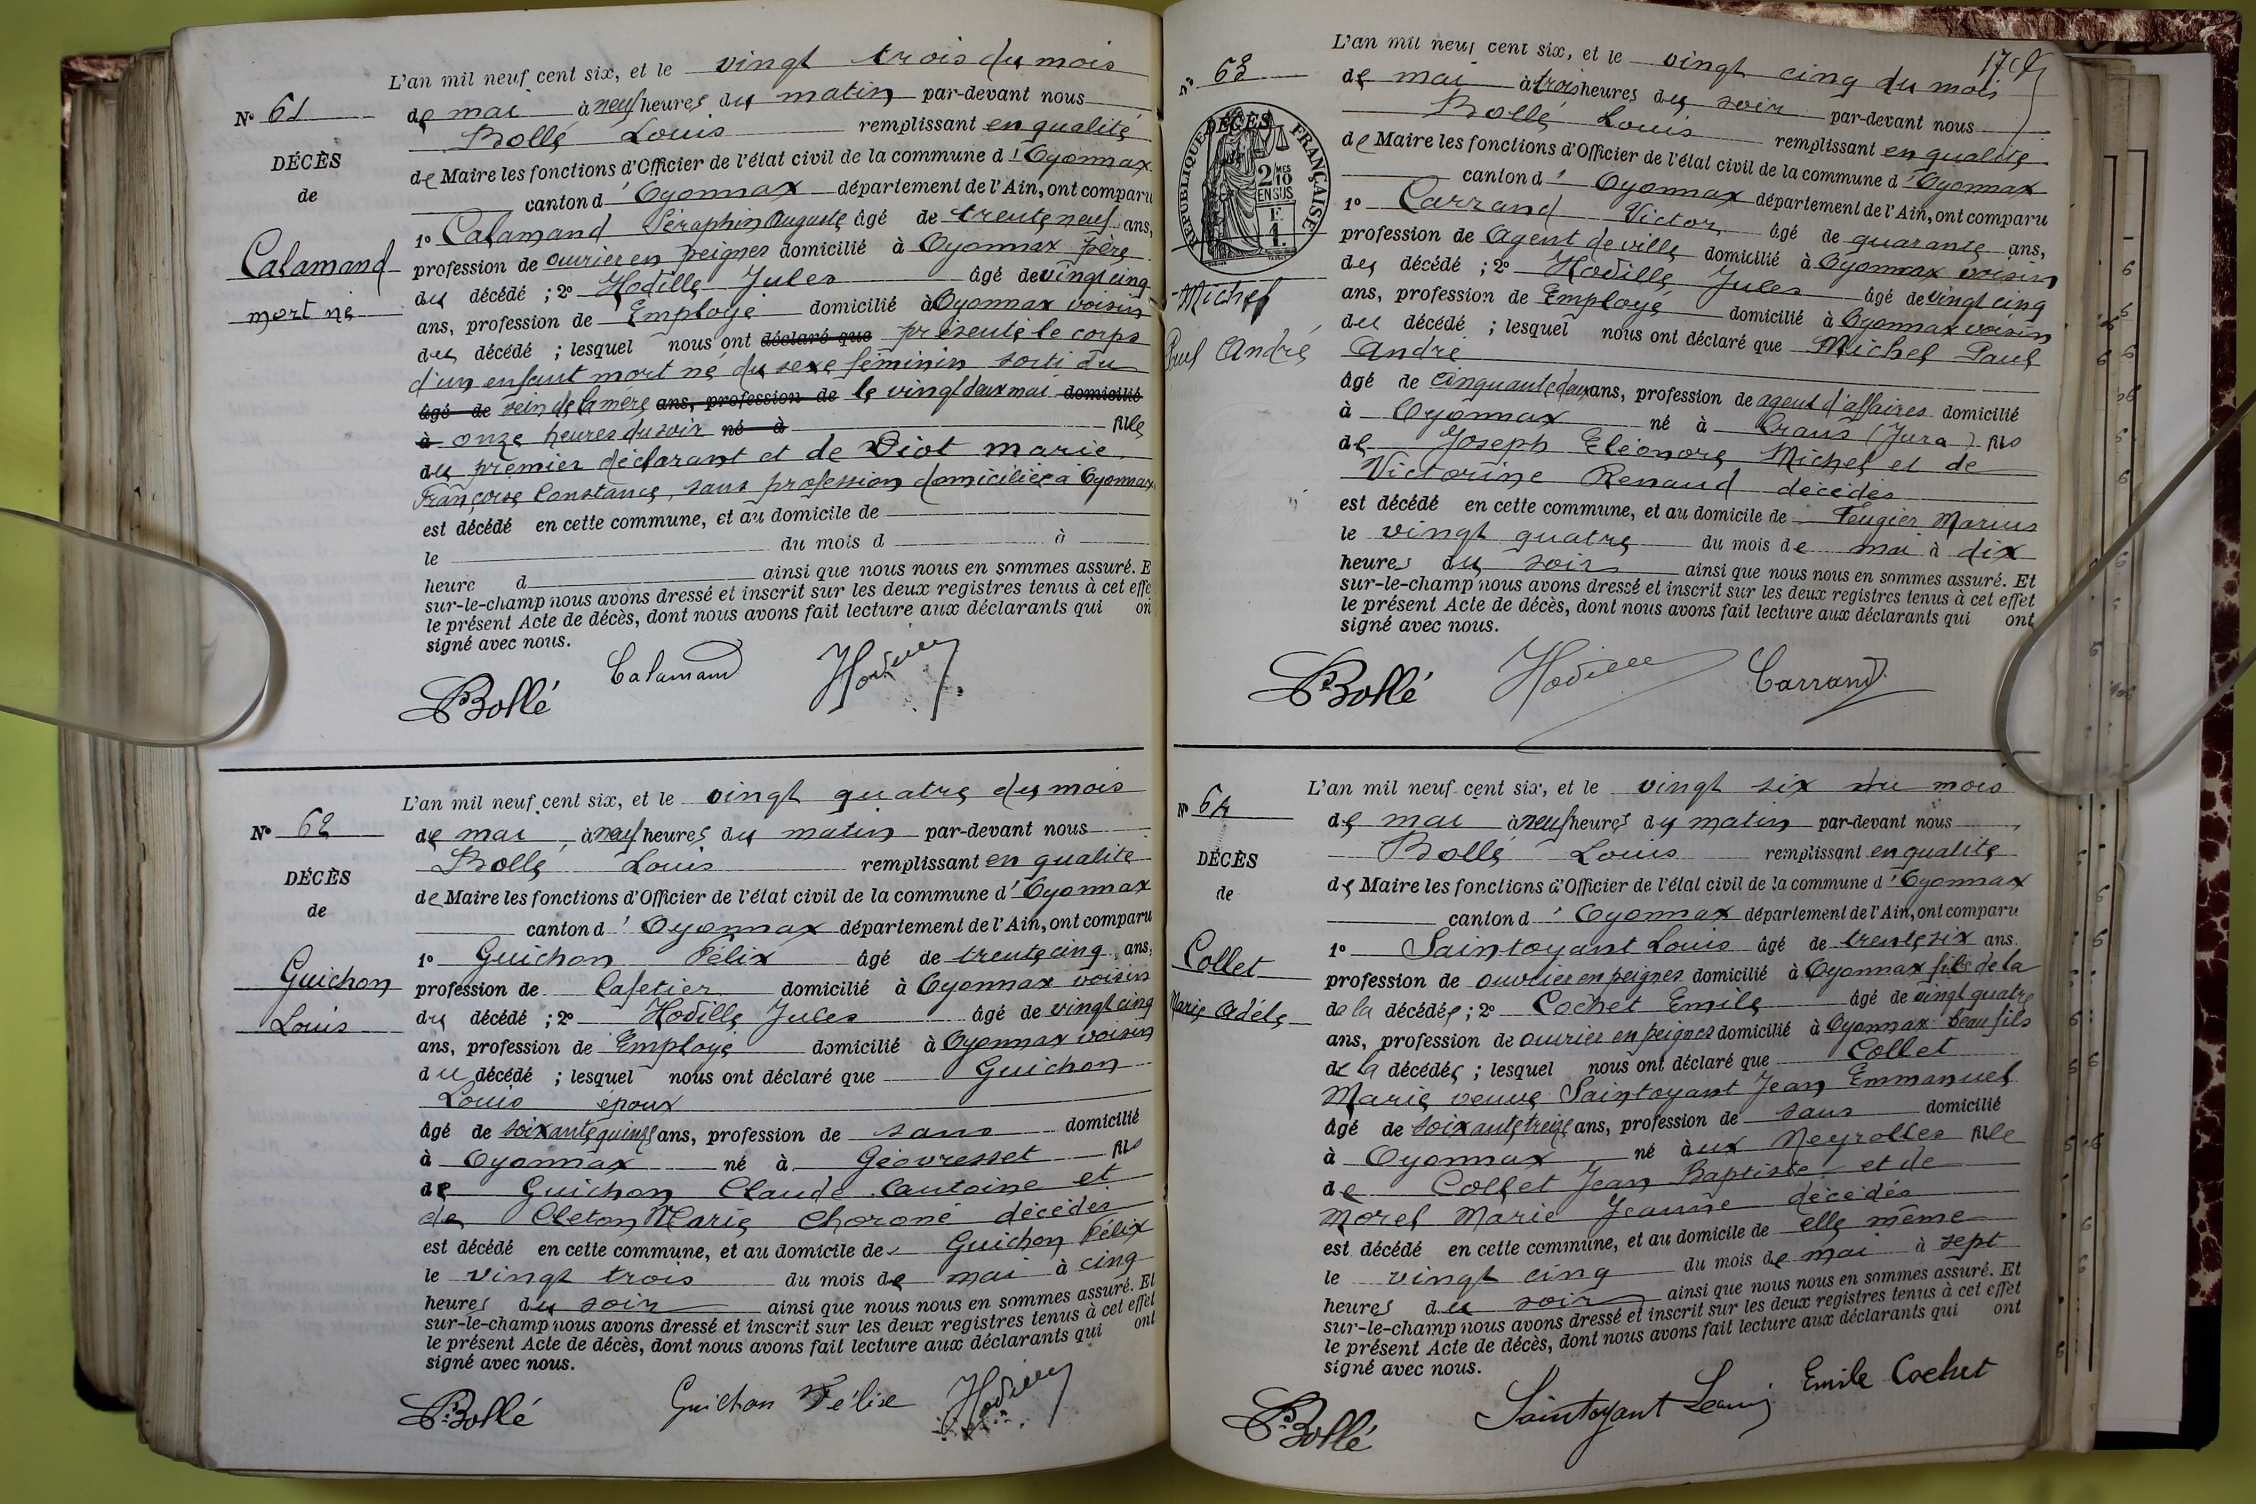 L'an mil neuf cent six, et le vingt trois du mois
N° 61
de mai à neuf heures du matin par-devant nous
Bollé Louis remplissant en qualité
DÉCÈS
de Maire les fonctions d'Officier de l'état civil de la commune d'Oyonnax
de
canton d'Oyonnax département de l'Ain, ont comparu
1° Calamand Séraphin Auguste âgé de trente neuf ans,
Calamand
profession de ouvrier en peignes domicilié à Oyonnax père
mort né
du décédé ; 2° Hodille Jules âgé de vingt cinq
ans, profession de Employé domicilié à Oyonnax voisin
du décédé ; lesquel nous ont déclaré que présenté le corps
d'un enfant mort né du sexe féminin sorti du
âgé de sein de la mère ans, profession de le vingt deux mai domicilié
à onze heures du soir né à fille
du premier déclarant et de Viot Marie
Françoise Constance, sans profession domiciliée à Oyonnax
est décédé en cette commune, et au domicile de
le du mois d à
heure d ainsi que nous nous en sommes assuré. E
sur-le-champ nous avons dressé et inscrit sur les deux registres tenus à cet effe
le présent Acte de décès, dont nous avons fait lecture aux déclarants qui on
signé avec nous.
Calamand Hodille
Bollé
L'an mil neuf cent six, et le vingt quatre du mois
N° 62
de mai à neuf heures du matin par-devant nous
Bollé Louis remplissant en qualité
DÉCÈS
de Maire les fonctions d'Officier de l'état civil de la commune d'Oyonnax
de
canton d'Oyonnax département de l'Ain, ont comparu
1° Guichon Félix âgé de trente cinq ans,
Guichon
profession de Cafetier domicilié à Oyonnax voisin
Louis
du décédé ; 2° Hodille Jules âgé de vingt cinq
ans, profession de Employé domicilié à Oyonnax voisin
du décédé ; lesquel nous ont déclaré que Guichon
Louis époux
âgé de soixante quinze ans, profession de sans domicilié
à Oyonnax né à Géovresset fils
de Guichon Claude Antoine et
de Cleton Marie décédés
est décédé en cette commune, et au domicile de Guichon Félix
le vingt trois du mois de mai à cinq
heures du soir ainsi que nous nous en sommes assuré. Et
sur-le-champ nous avons dressé et inscrit sur les deux registres tenus à cet effet
le présent Acte de décès, dont nous avons fait lecture aux déclarants qui ont
signé avec nous.
Bollé Guichon Félix Hodille
L'an mil neuf cent six, et le vingt cinq du mois
N° 63
de mai à trois heures du soir par-devant nous
Bollé Louis remplissant en qualité
DÉCÈS
RÉPUBLIQUE FRANÇAISE
2 MES 10 EN SUS
de Maire les fonctions d'Officier de l'état civil de la commune d'Oyonnax
canton d'Oyonnax département de l'Ain, ont comparu
1° Carrand Victor âgé de quarante ans,
profession de Agent de ville domicilié à Oyonnax voisin
du décédé ; 2° Hodille Jules âgé de vingt cinq
Michel
ans, profession de Employé domicilié à Oyonnax voisin
Paul André
du décédé ; lesquel nous ont déclaré que Michel Paul
André
âgé de cinquante deux ans, profession de agent d'affaires domicilié
à Oyonnax né à Crans (Jura) fils
de Joseph Eléonore Michel et de
Victorine Renaud décédés
est décédé en cette commune, et au domicile de Feugier Marius
le vingt quatre du mois de mai à dix
heures du soir ainsi que nous nous en sommes assuré. Et
sur-le-champ nous avons dressé et inscrit sur les deux registres tenus à cet effet
le présent Acte de décès, dont nous avons fait lecture aux déclarants qui ont
signé avec nous.
Bollé Hodille Carrand
L'an mil neuf cent six, et le vingt six du mois
N° 64
de mai à neuf heures du matin par-devant nous
Bollé Louis remplissant en qualité
DÉCÈS
de Maire les fonctions d'Officier de l'état civil de la commune d'Oyonnax
de
canton d'Oyonnax département de l'Ain, ont comparu
1° Saintoyant Louis âgé de trente six ans.
Collet
profession de ouvrier en peignes domicilié à Oyonnax fils de la
Marie Adèle
de la décédée ; 2° Cochet Emile âgé de vingt quatre
ans, profession de ouvrier en peignes domicilié à Oyonnax beau fils
de la décédée ; lesquel nous ont déclaré que Collet
Marie veuve Saintoyant Jean Emmanuel
âgé de soixante treize ans, profession de sans domicilié
à Oyonnax né aux Neyrolles fille
de Collet Jean Baptiste et de
Morel Marie Jeanne décédés
est décédé en cette commune, et au domicile de elle même
le vingt cinq du mois de mai à sept
heures du soir ainsi que nous nous en sommes assuré. Et
sur-le-champ nous avons dressé et inscrit sur les deux registres tenus à cet effet
le présent Acte de décès, dont nous avons fait lecture aux déclarants qui ont
signé avec nous.
Bollé Saintoyant Louis Emile Cochet